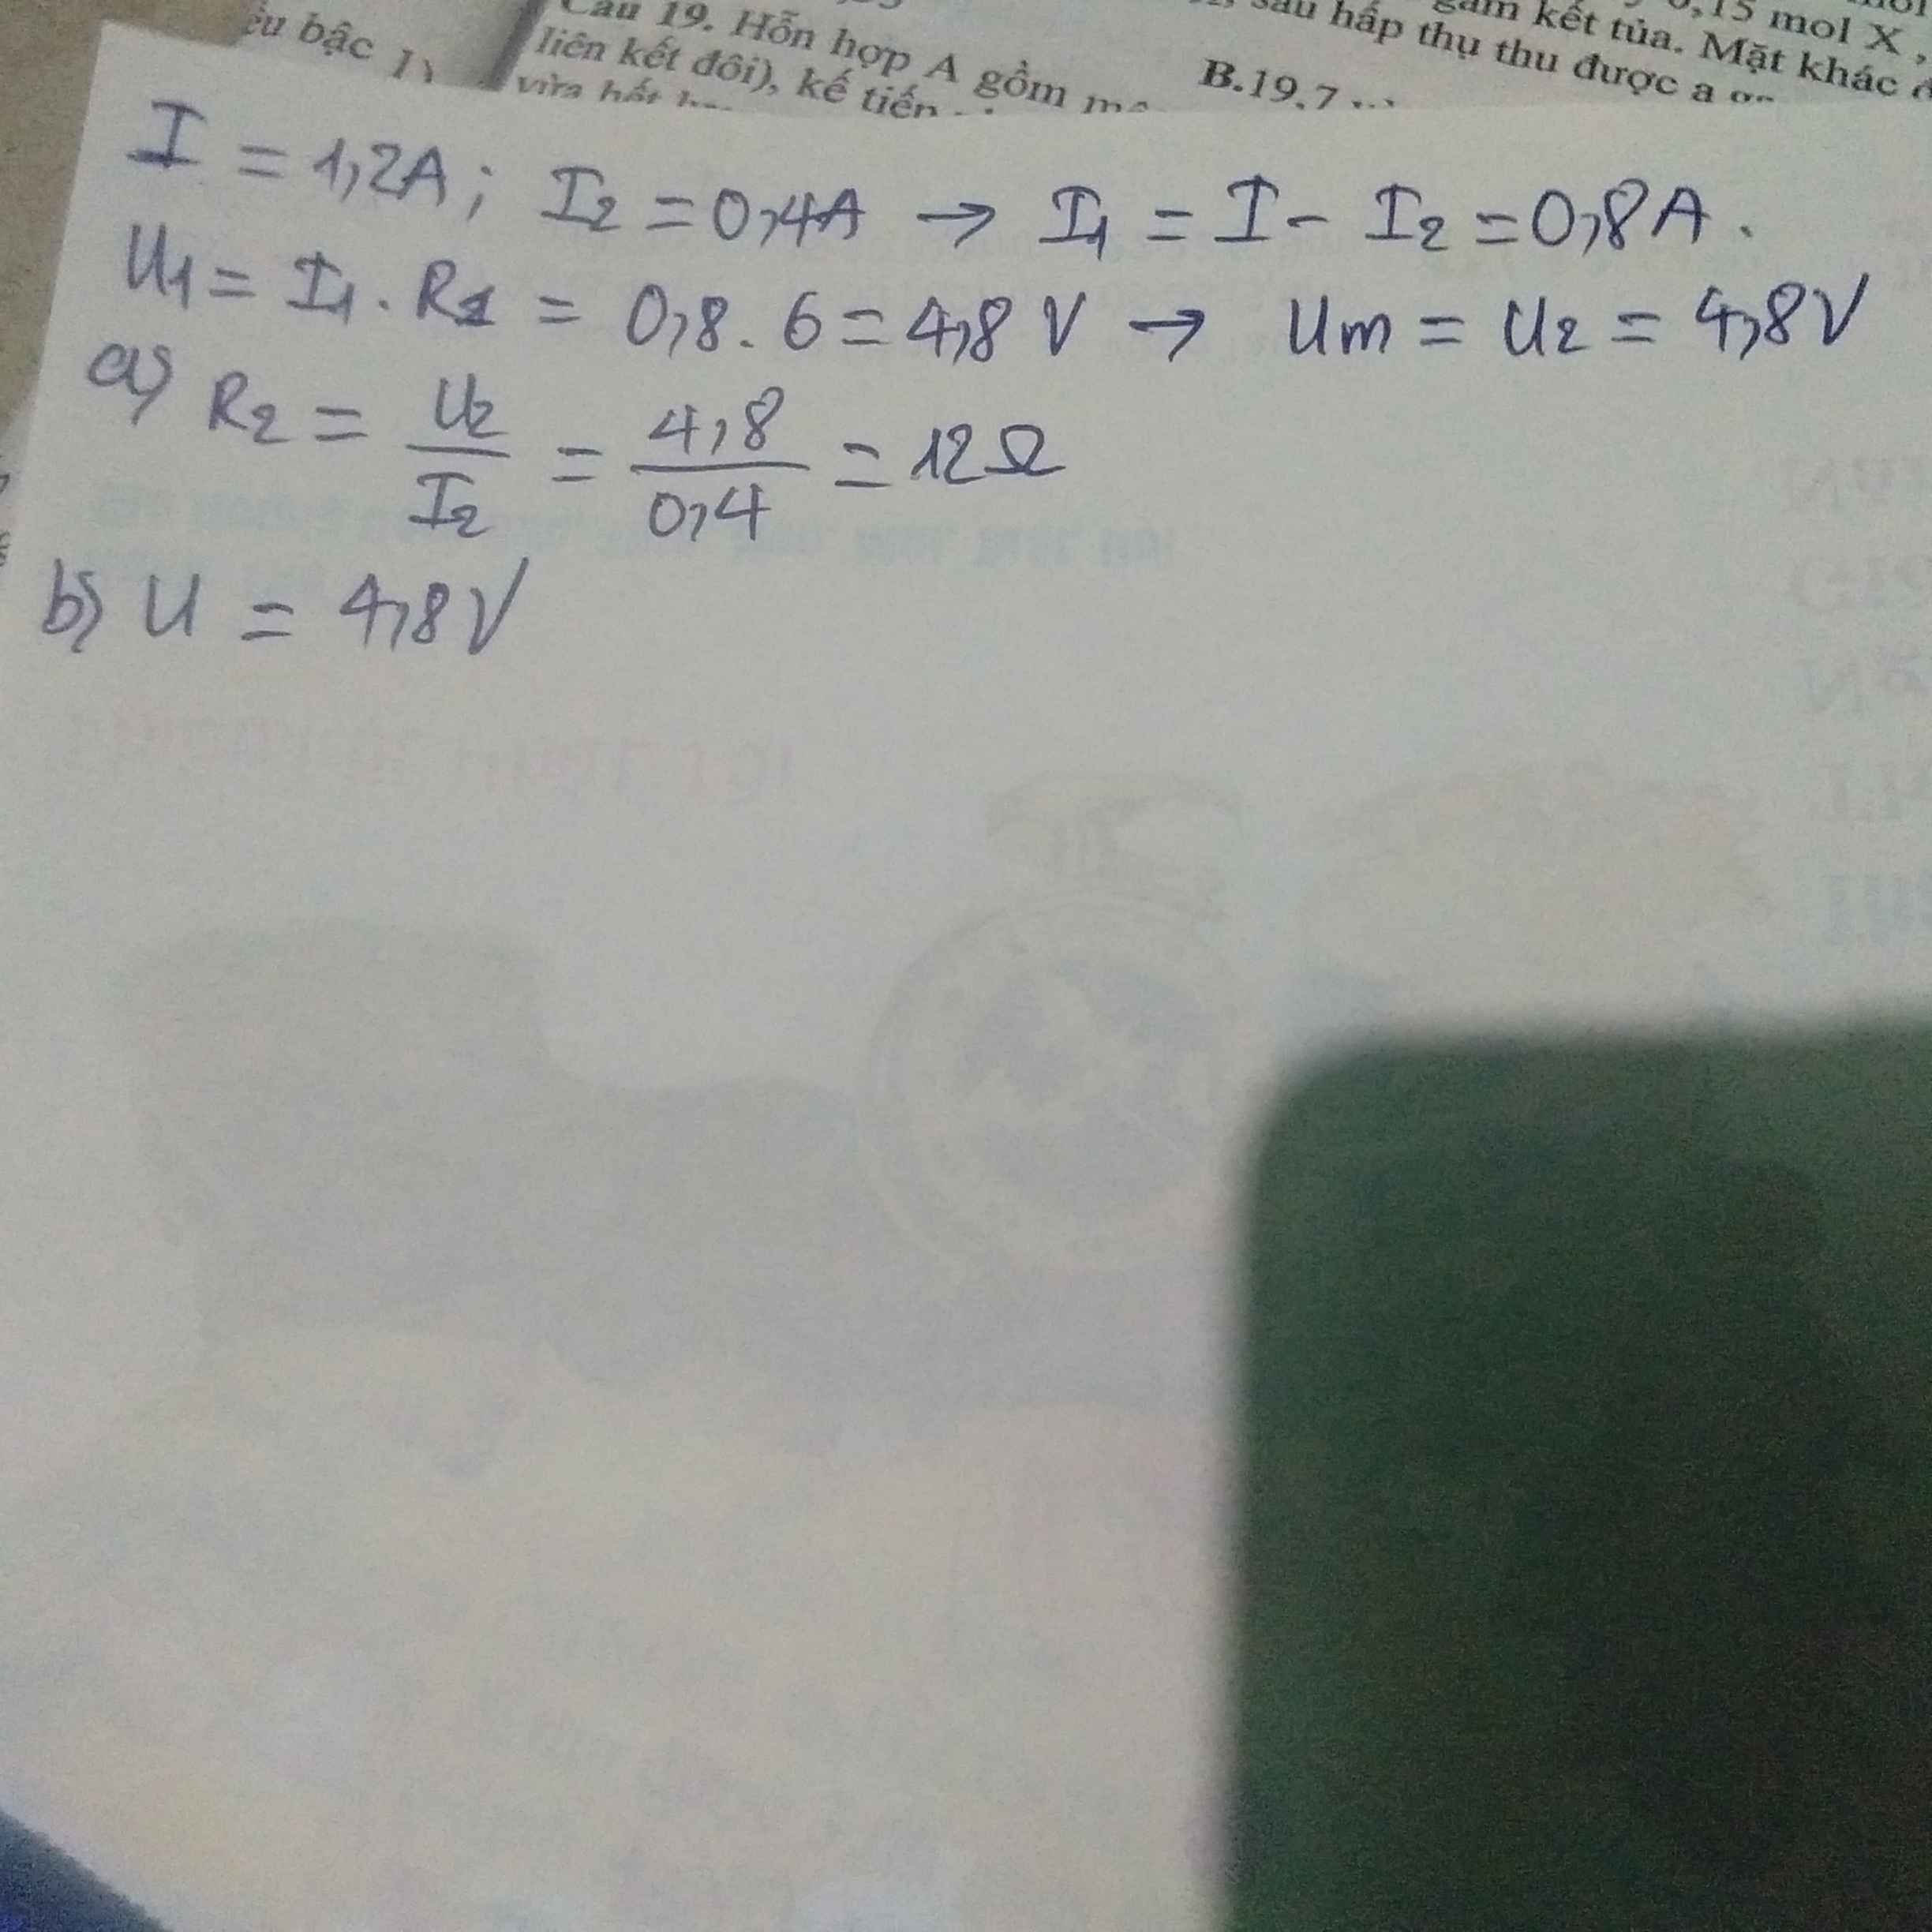 bậc 1)
Câu 19. Hỗn hợp A gồm
liên kết đôi), kế tiếp
vừa hết
B.19,7
0,15 mol X,
gam kết tủa. Mặt khác
sau hấp thụ thu được a
I = 1,2A; I2 = 0,4A → I1 = I - I2 = 0,8A.
U1 = I1 . R1 = 0,8 . 6 = 4,8 V → Um = U2 = 4,8V
a) R2 = U2/I2 = 4,8/0,4 = 12Ω
b) U = 4,8V